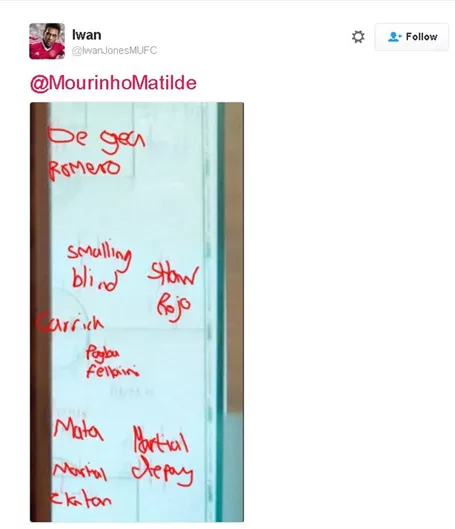 Iwan
@IwanJonesMUFC
Follow
@MourinhoMatilde
De gea
Romero
smalling
blind
Shaw
Rojo
Carrick
Pogba
fellaini
Mata
Martial
Martial
depay